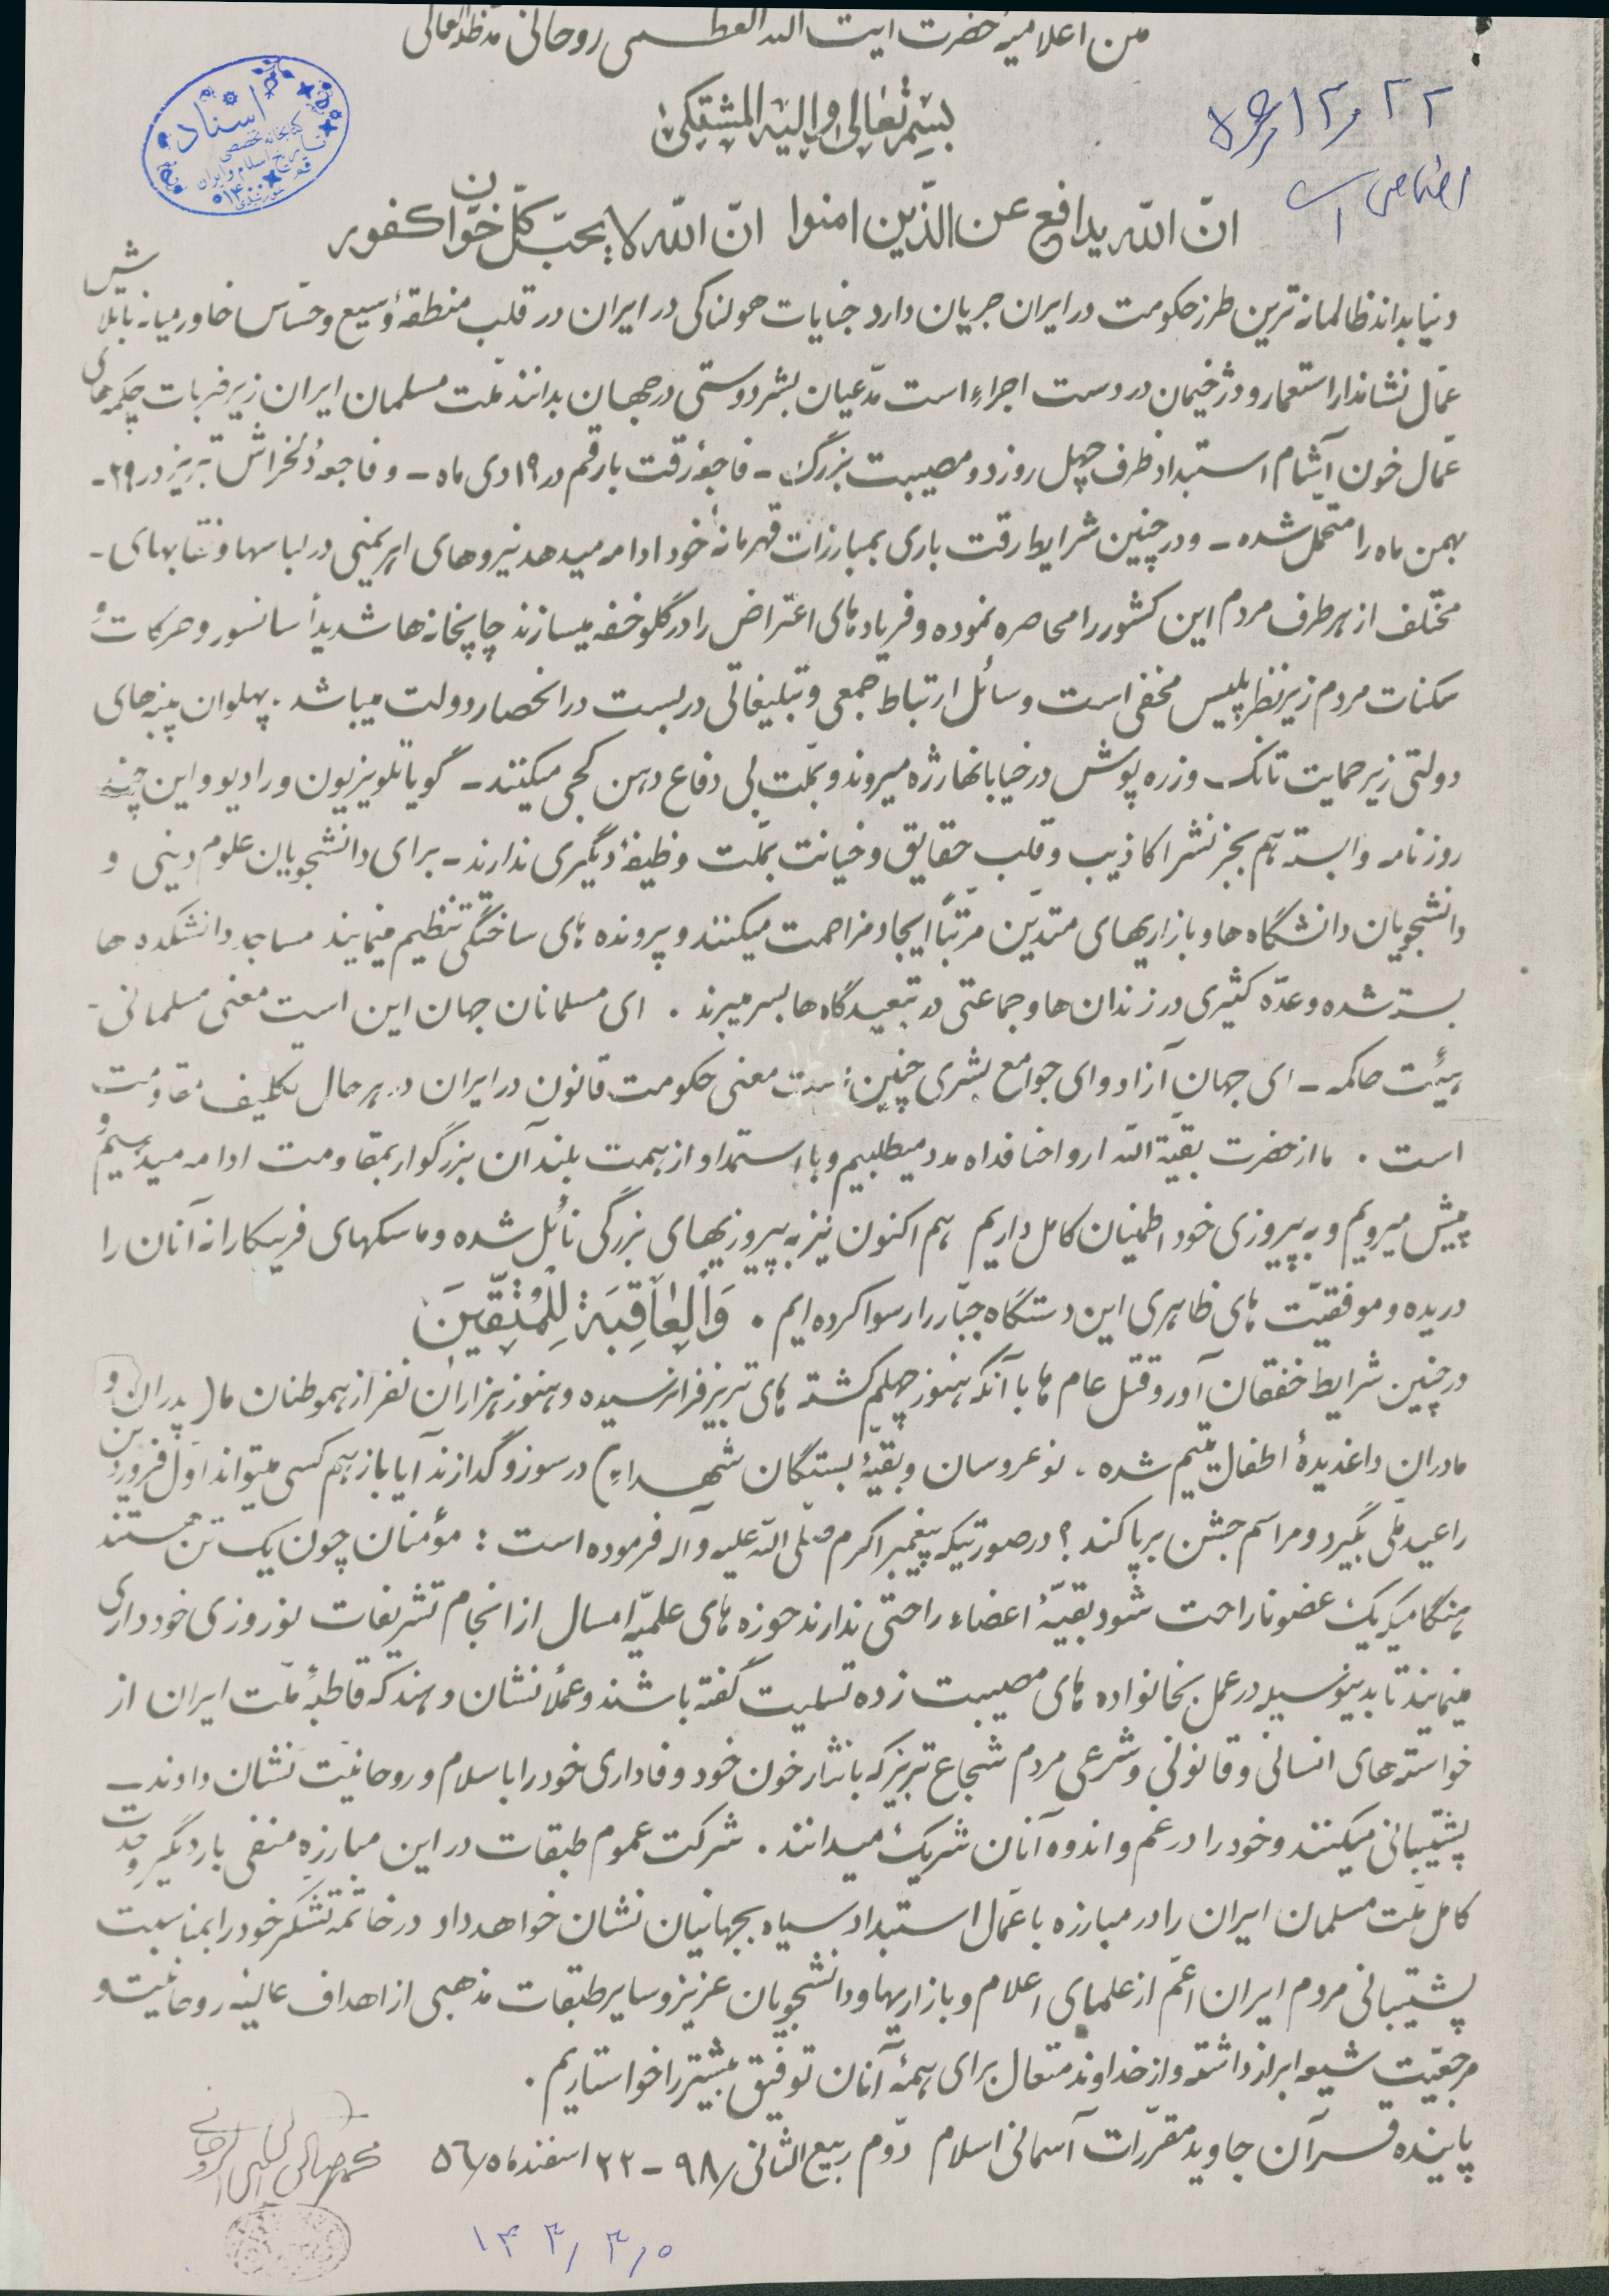 متن اعلامیهٔ حضرت آیت الله العظمی روحانی مدظله العالی
بسمه تعالی و الیه المشتکی
۵۶/۱۲/۲۲
انّ الله یدافع عن الذّین امنوا انّ الله لا یحبّ کلّ خوّان کفور
دنیا بداند ظالمانه ترین طرز حکومت در ایران جریان دارد جنایات هولناکی در ایران در قلب منطقهٔ وسیع و حسّاس خاورمیانه با تلاش
عمّال نشاندار استعمار و دژخیمان در دست اجراء است مدّعیان بشر دوستی در جهان بدانند ملّت مسلمان ایران زیر ضربات چکمه های
عمّال خون آشام استبداد ظرف چهل روز دو مصیبت بزرگ - فاجعهٔ رقت بار قم در ۱۹ دی ماه - و فاجعهٔ دلخراش تبریز در ۲۹ -
بهمن ماه را متحمّل شده - و در چنین شرایط رقت باری بمبارزات قهرمانهٔ خود ادامه میدهد نیروهای اهریمنی در لباسها و نقابهای -
مختلف از هر طرف مردم این کشور را محاصره نموده و فریادهای اعتراض را در گلو خفه میسازند چاپخانه ها شدیداً سانسور و حرکات و
سکنات مردم زیر نظر پلیس مخفی است وسائل ارتباط جمعی و تبلیغاتی دربست در انحصار دولت میباشد . پهلوان پنبه های
دولتی زیر حمایت تانک و زره پوش در خیابانها رژه میروند و بملّت بی دفاع دهن کجی میکنند - گویا تلویزیون و رادیو و این چند
روزنامه وابسته هم بجز نشر اکاذیب و قلب حقایق و خیانت بملّت وظیفهٔ دیگری ندارند - برای دانشجویان علوم دینی و
دانشجویان دانشگاه ها و بازاریهای متدیّن مرتّباً ایجاد مزاحمت میکنند و پرونده های ساختگی تنظیم مینمایند مساجد دانشکده ها
بسته شده و عدّه کثیری در زندان ها و جماعتی در تبعیدگاه ها بسر میبرند . ای مسلمانان جهان این است معنی مسلمانی -
هیئت حاکمه - ای جهان آزاد و ای جوامع بشری چنین است معنی حکومت قانون در ایران در هر حال تکلیف مقاومت
است . ما از حضرت بقیّة الله ارواحنا فداه مدد میطلبیم و با استمداد از همت بلند آن بزرگوار بمقاومت ادامه میدهیم و
پیش میرویم و به پیروزی خود اطمینان کامل داریم هم اکنون نیز به پیروزیهای بزرگی نائل شده و ماسکهای فریبکارانه آنان را
دریده و موفقیّت های ظاهری این دستگاه جبّار را رسوا کرده ایم . وَالْعاقِبَة لِلْمُتَّقینَ
در چنین شرایط خفقان آور و قتل عام ها با آنکه هنوز چهلم کشته های تبریز فرا نرسیده و هنوز هزاران نفر از هموطنان ما ( پدران و
مادران داغدیدهٔ اطفال یتیم شده ، نوعروسان و بقیّهٔ بستگان شهداء ) در سوز و گدازند آیا باز هم کسی میتواند اوّل فروردین
را عید ملّی بگیرد و مراسم جشن برپا کند ؟ در صورتیکه پیغمبر اکرم صلّی الله علیه و آله فرموده است : مؤمنان چون یک تن هستند
هنگامیکه یک عضو ناراحت شود بقیّهٔ اعضاء راحتی ندارند حوزه های علمیّه امسال از انجام تشریفات نوروزی خودداری
مینمایند تا بدینوسیله در عمل بخانواده های مصیبت زده تسلیت گفته باشند و عملاً نشان دهند که قاطبهٔ ملّت ایران از
خواسته های انسانی و قانونی و شرعی مردم شجاع تبریز که با نثار خون خود وفاداری خود را باسلام و روحانیّت نشان دادند -
پشتیبانی میکنند و خود را در غم و اندوه آنان شریک میدانند . شرکت عموم طبقات در این مبارزه منفی بار دیگر وحدت
کامل ملّت مسلمان ایران را در مبارزه با عمّال استبداد سیاه بجهانیان نشان خواهد داد در خاتمه تشکّر خود را بمناسبت
پشتیبانی مردم ایران اعمّ از علمای اعلام و بازاریها و دانشجویان عزیز و سایر طبقات مذهبی از اهداف عالیه روحانیّت و
مرجعیّت شیعه ابراز داشته و از خداوند متعال برای همهٔ آنان توفیق بیشتر را خواستاریم .
پاینده قرآن جاوید مقرّرات آسمانی اسلام دوّم ربیع الثانی/۹۸ - ۲۲ اسفند ماه/۵٦
اسناد
کتابخانه تخصصی
تاریخ اسلام و ایران